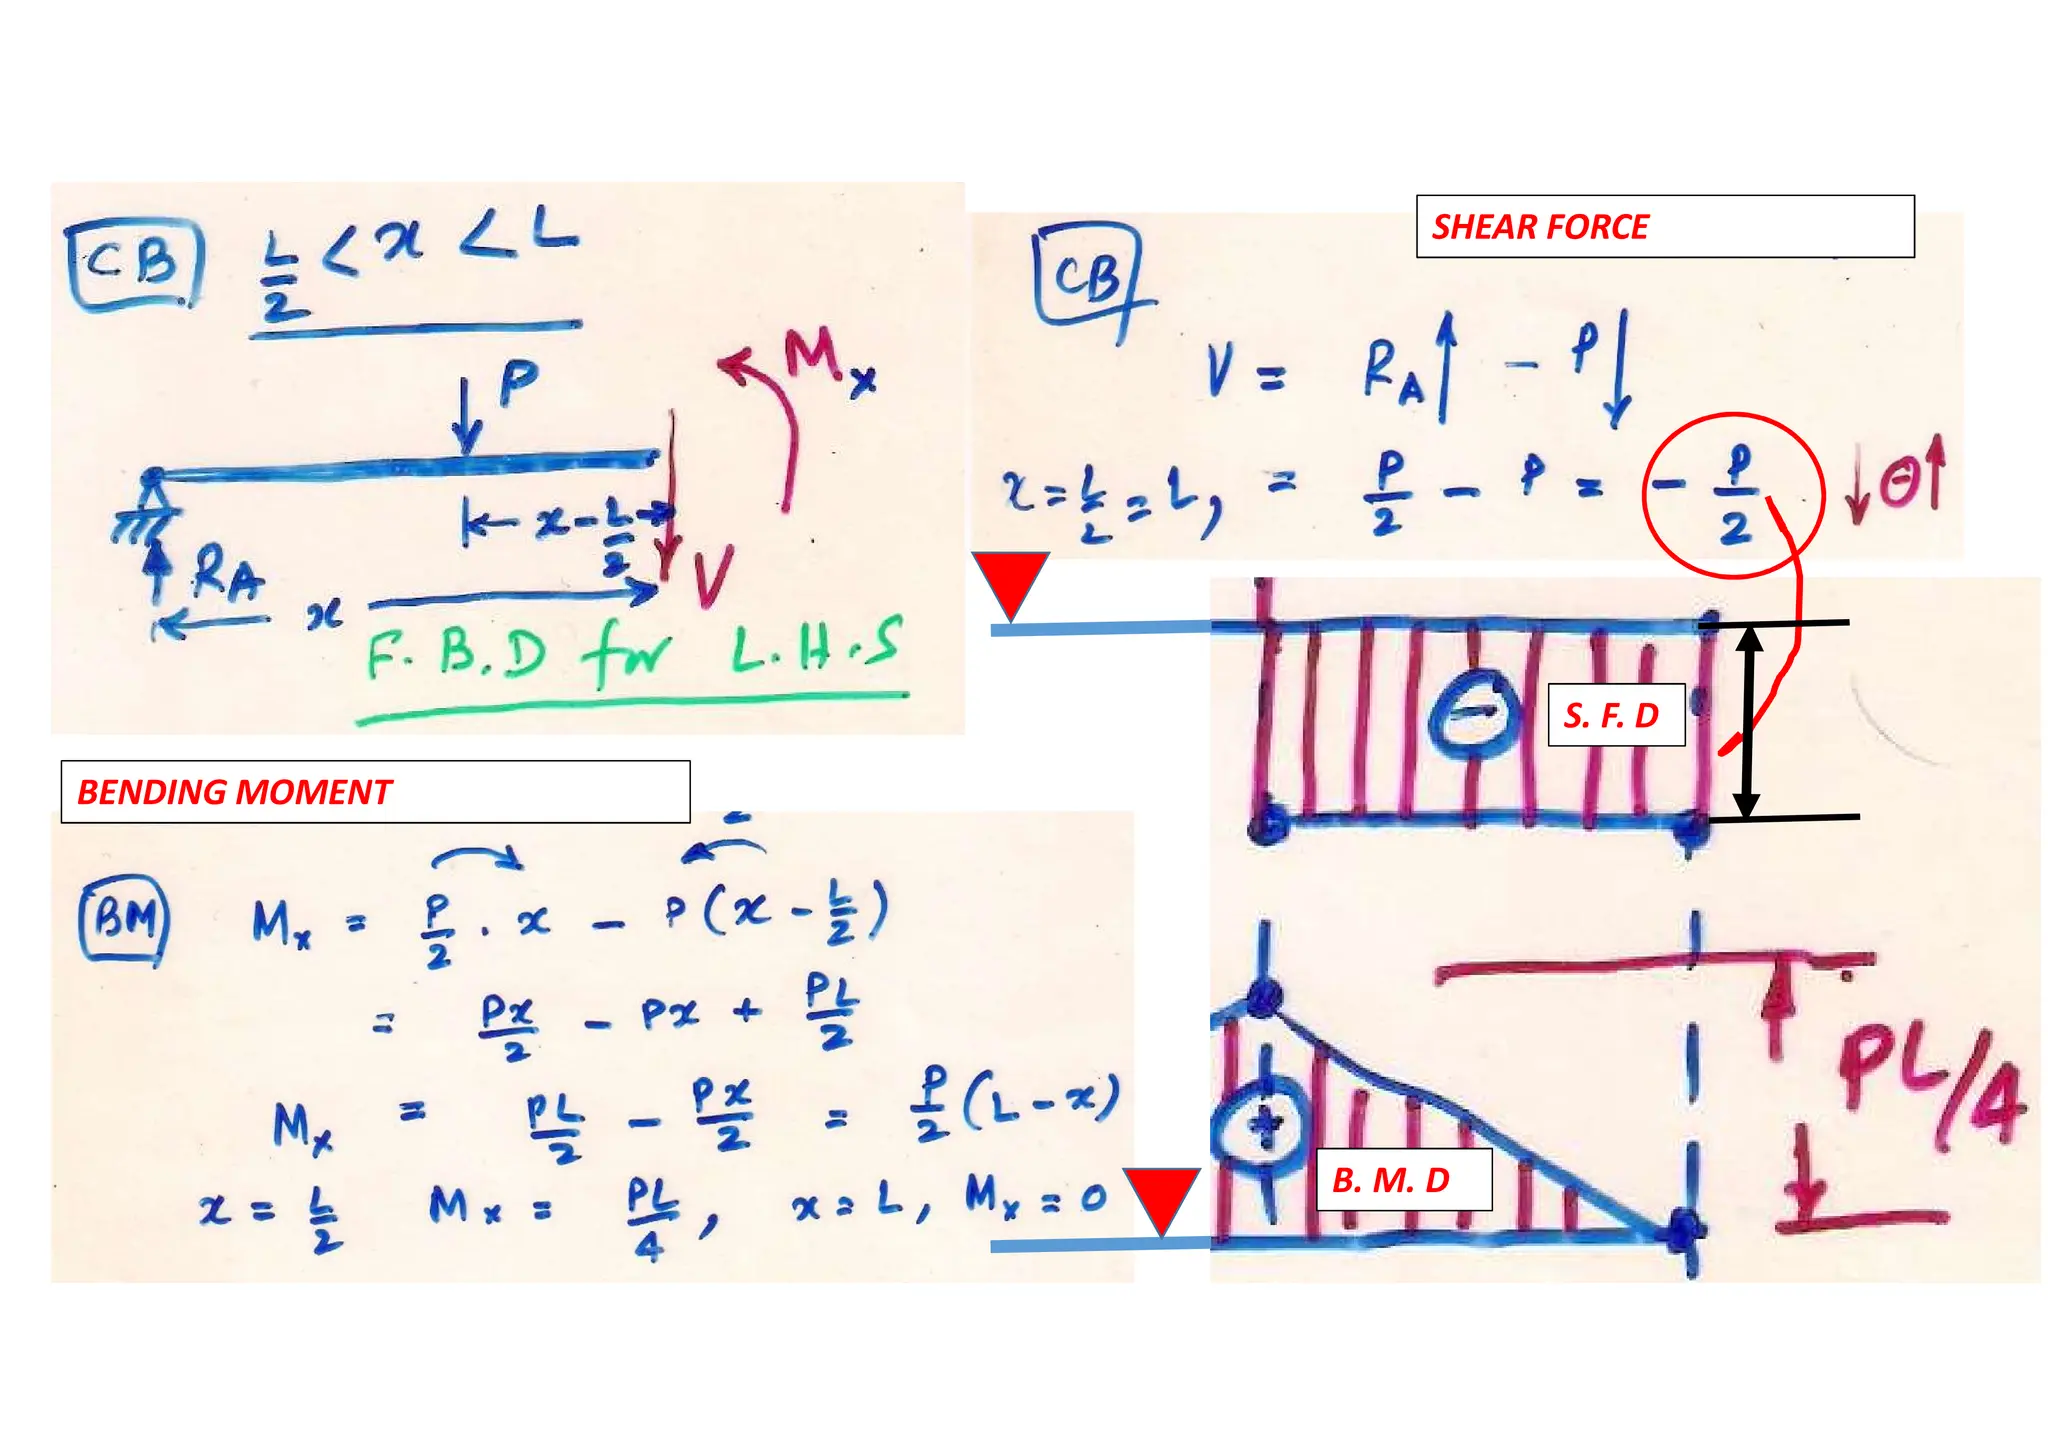 CB L/2 < x < L
P
Mx
x - L/2
RA
V
x
F.B.D for L.H.S
SHEAR FORCE
CB
V = RA↑ - P↓
x = L/2 = L, = P/2 - P = - P/2 ↓⊖↑
-
S. F. D
BENDING MOMENT
BM Mx = P/2 . x - P(x - L/2)
= Px/2 - Px + PL/2
Mx = PL/2 - Px/2 = P/2 (L - x)
x = L/2 Mx = PL/4, x = L, Mx = 0
+
B. M. D
PL/4